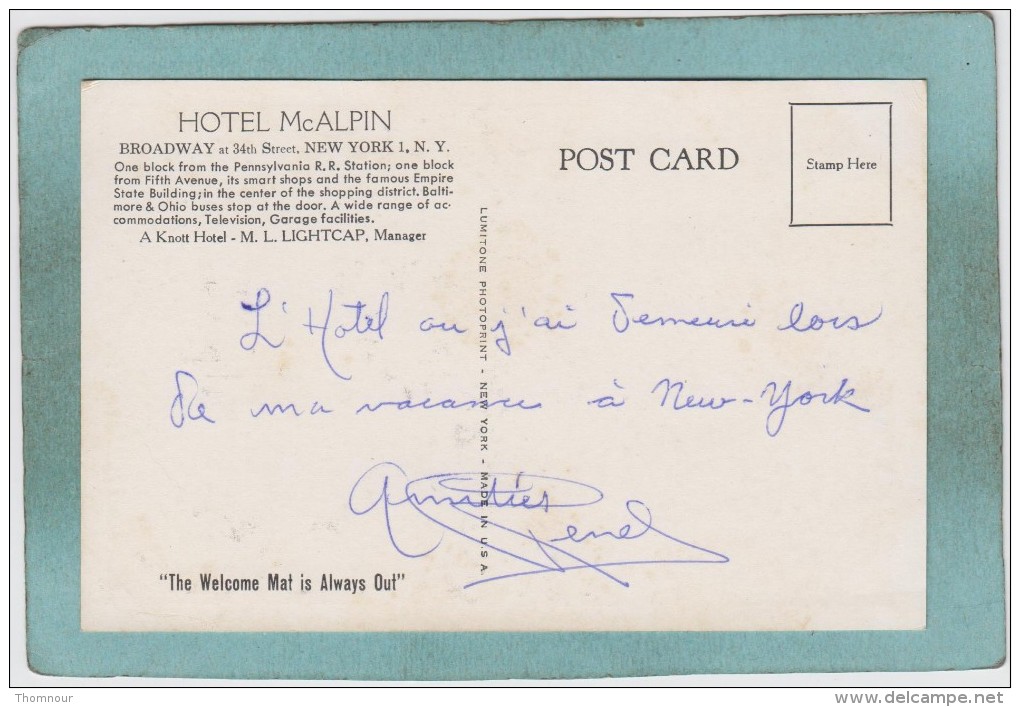 HOTEL McALPIN
BROADWAY at 34th Street, NEW YORK 1, N. Y.
One block from the Pennsylvania R.R. Station; one block
from Fifth Avenue, its smart shops and the famous Empire
State Building; in the center of the shopping district. Balti-
more & Ohio buses stop at the door. A wide range of ac-
commodations, Television, Garage facilities.
A Knott Hotel - M. L. LIGHTCAP, Manager
POST CARD
Stamp Here
LUMITONE PHOTOPRINT - NEW YORK - MADE IN U.S.A.
L'Hotel ou j'ai demeuré lors
de ma vacance à New-York
Amitiés
"The Welcome Mat is Always Out"
Thomnour
delcampe.net